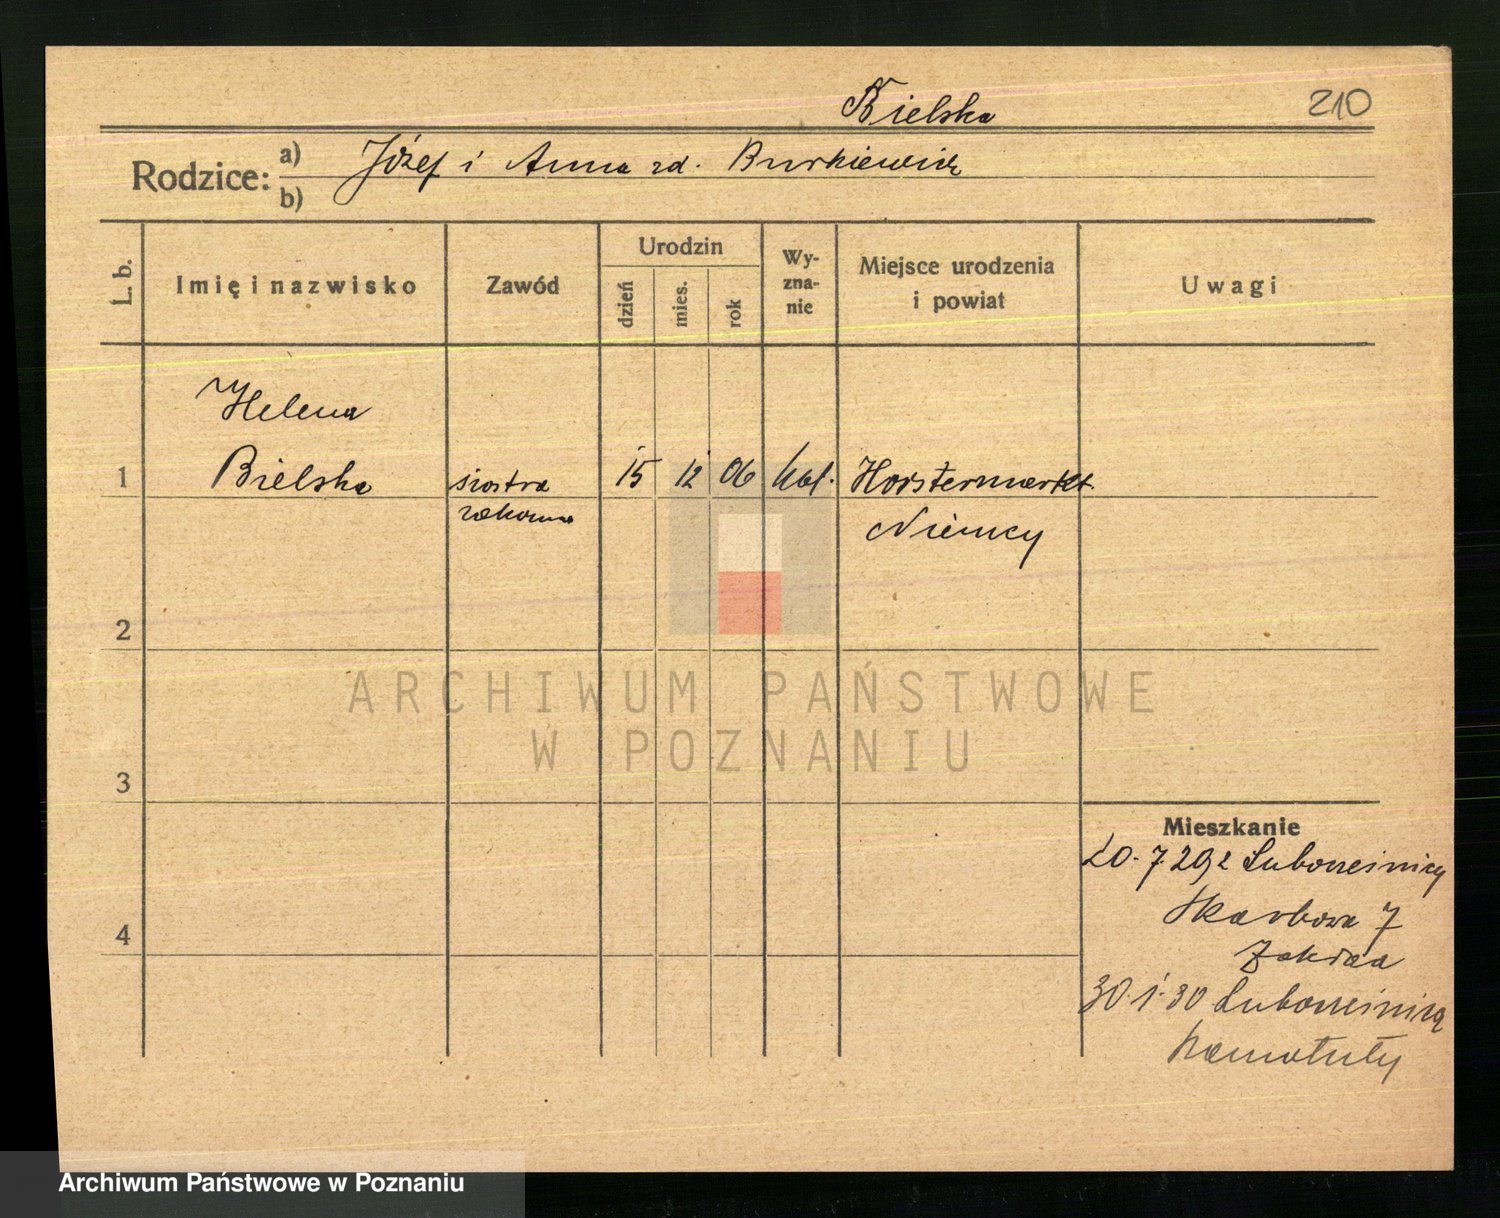 Bielska
210
Rodzice:
a) Józef i Anna zd. Burkiewicz
b)
L. b.
Imię i nazwisko
Zawód
Urodzin
dzień
mies.
rok
Wy-
zna-
nie
Miejsce urodzenia
i powiat
Uwagi
Helena
1 Bielska siostra 15 12 06 kat. Horstermarkt
zakonna Niemcy
2
ARCHIWUM PAŃSTWOWE
W POZNANIU
3
Mieszkanie
20. 7 29 z
Skarbowa 7
4
30. 1. 30
Archiwum Państwowe w Poznaniu